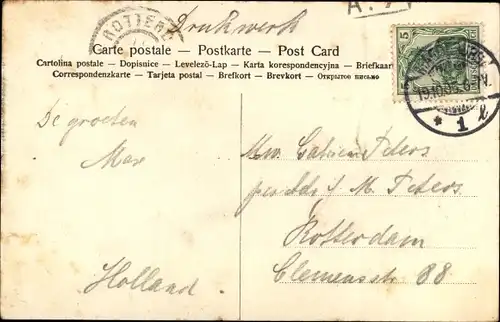 Drukwerk
ROTTERD
Carte postale – Postkarte – Post Card
Cartolina postale – Dopisnice – Levelező-Lap – Karta korespondencyjna – Briefkaart
Correspondenzkarte – Tarjeta postal – Brefkort – Brevkort – Открытое письмо
5
* 1 l
De groeten
Max
Holland
Peters
M. Peters
Rotterdam
Clemensstr 88